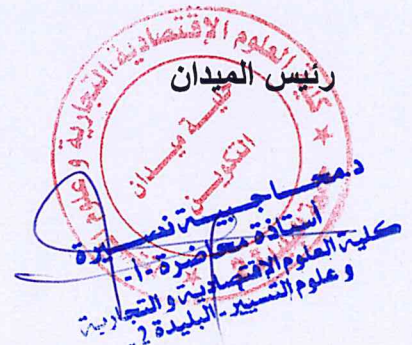 كلية العلوم الإقتصادية، التجارية و علوم
رئيس الميدان
ميدان
التكوين
د.محاجبية نسيرة
أستاذة محاضرة -أ-
كلية العلوم الإقتصادية و التجارية
و علوم التسيير - البليدة 2